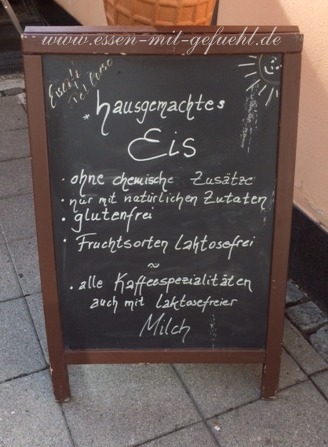 www.essen-mit-gefuehl.de
* hausgemachtes
Eis
• ohne chemische Zusätze
• nur mit natürlichen Zutaten
• glutenfrei
• Fruchtsorten laktosefrei
~
• alle Kaffeespezialitäten
auch mit laktosefreier
Milch